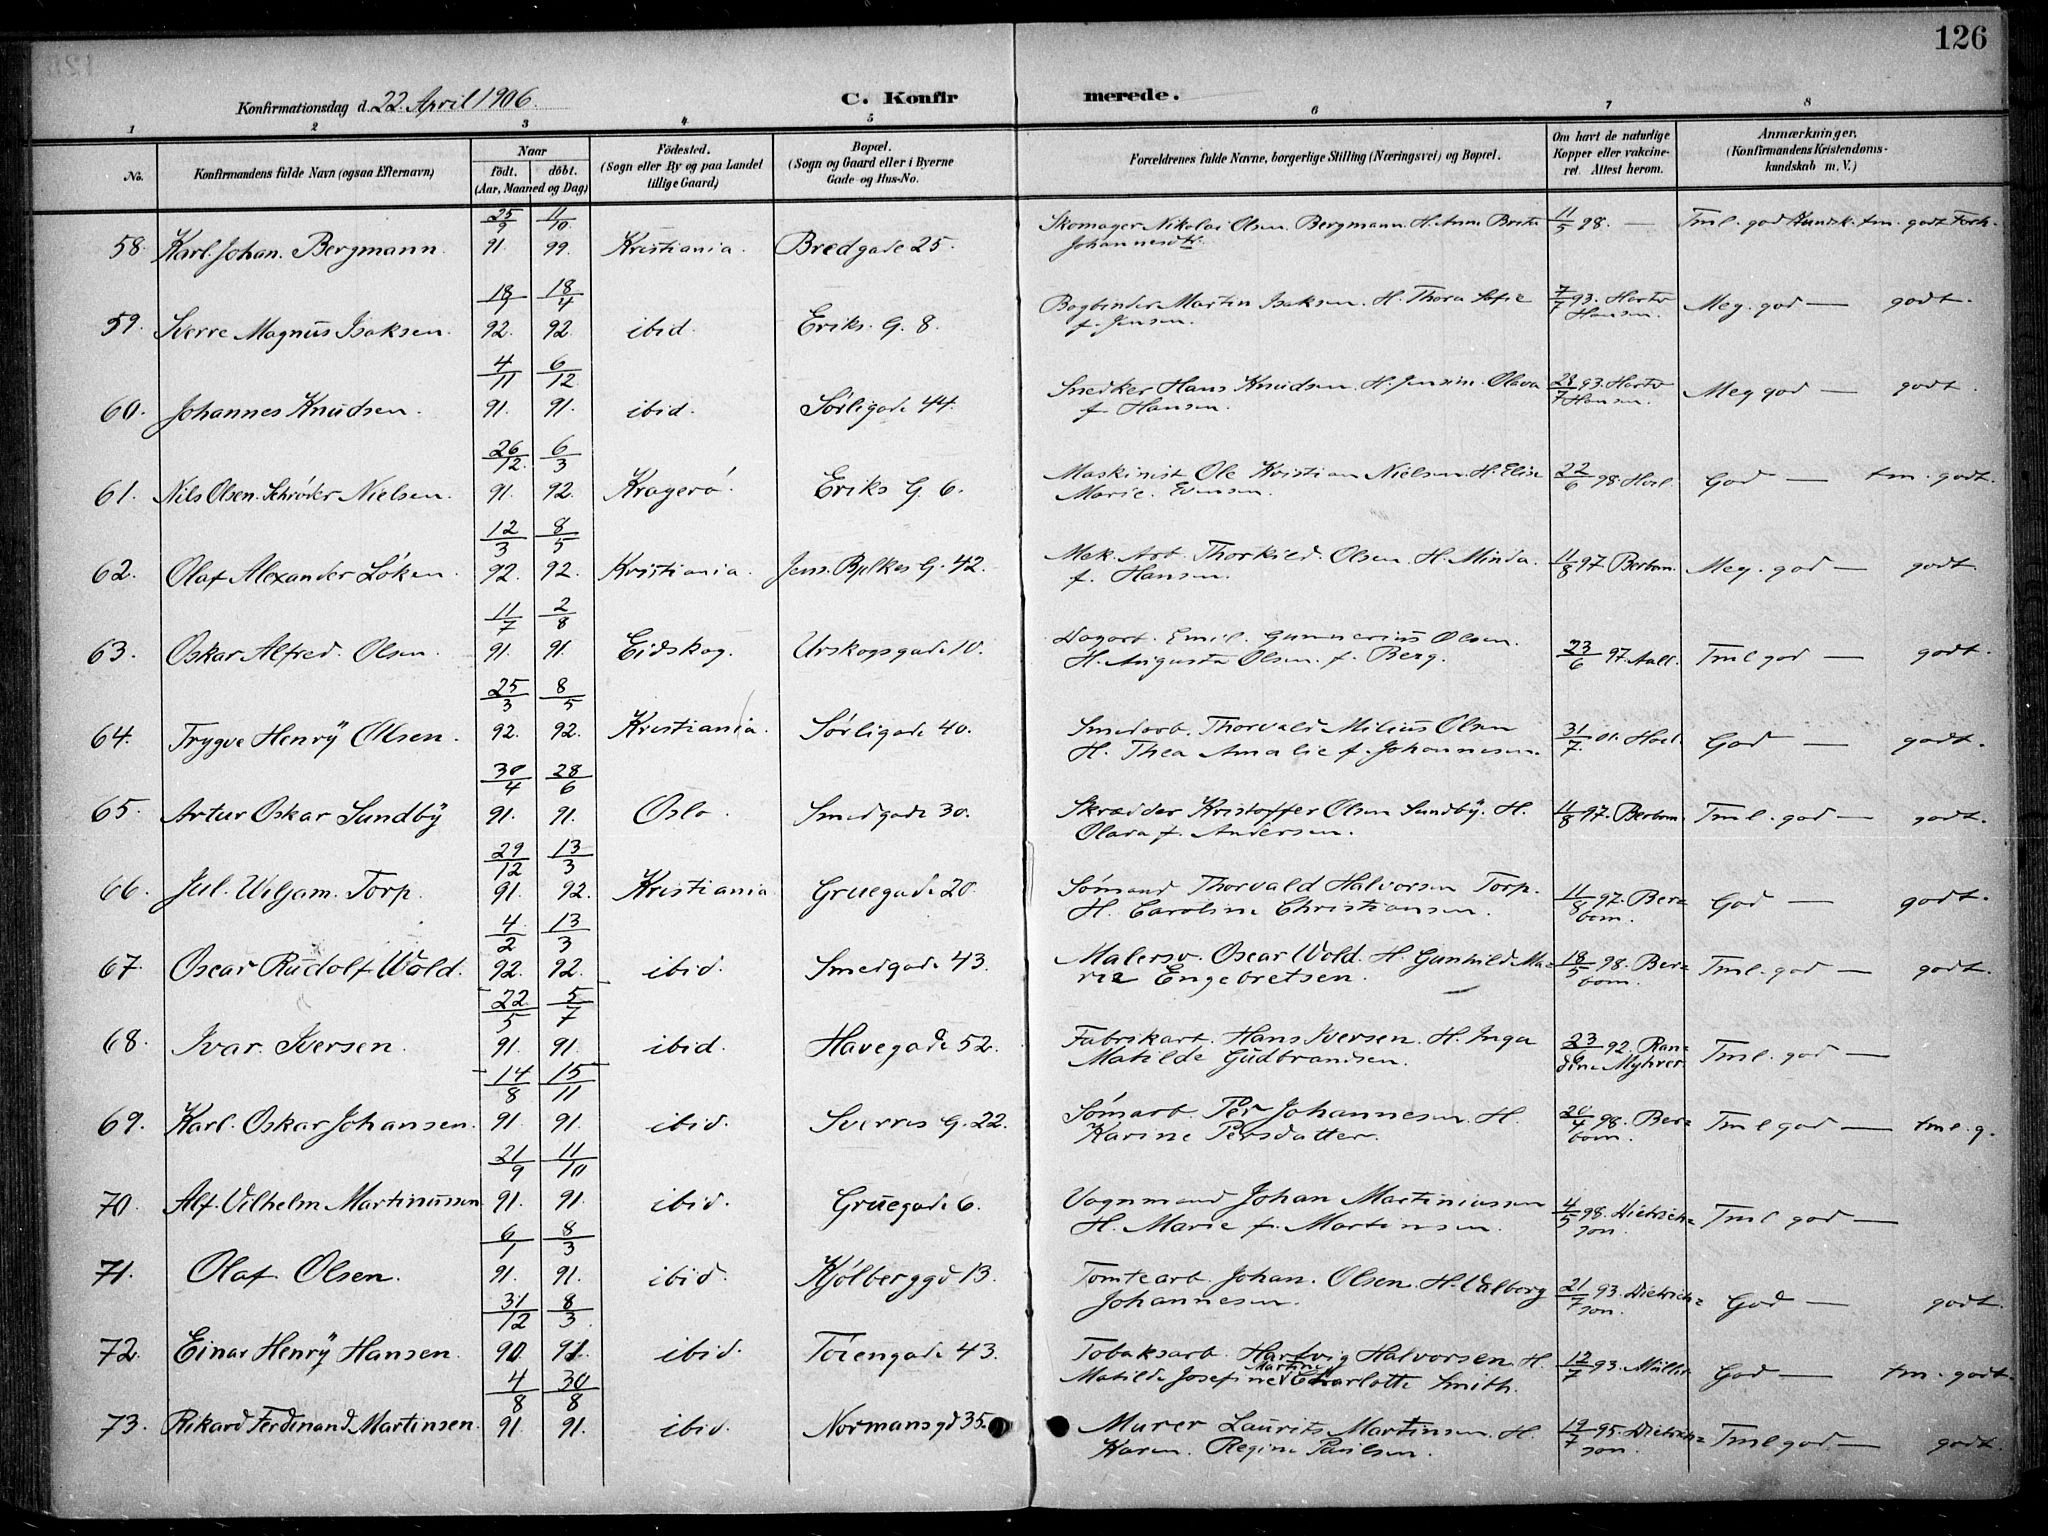 126
Konfirmationsdag d. 22. April 1906.
C. Konfirmerede.
1 2 3 4 5 6 7 8
No. Konfirmandens fulde Navn (ogsaa Efternavn) Naar født. døbt. (Aar, Maaned og Dag) Fødested. (Sogn eller By og paa Landet tillige Gaard) Bopæl. (Sogn og Gaard eller i Byerne Gade og Hus-No. Forældrenes fulde Navne, borgerlige Stilling (Næringsvei) og Bopæl. Om havt de naturlige Kopper eller vakcineret. Attest herom. Anmærkninger. (Konfirmandens Kristendomskundskab m. V.)
58. Karl Johan. Bergmann. 25/9 91. 11/10 99. Kristiania. Bredgade 25. Skomager Nikolai Olsen Bergmann. H. Anna Brita Johannesdtr. 11/5 98. — Tml. god Kundsk. tm. godt Forh.
59. Sverre Magnus Isaksen. 18/1 92. 18/4 92. ibid. Eriks. G. 8. Bogbinder Martin Isaksen. H. Thora Sofie f. Jensen. 7/7 93. Hartv Hansen. Meg. god — godt.
60. Johannes Knudsen. 4/11 91. 6/12 91. ibid. Sørligade 44. Snedker Hans Knudsen. H. Jensin. Olava f. Hansen. 28/7 93. Hartv Hansen. Meg god — godt.
61. Nils Olsen Schrøder Nielsen. 26/12 91. 6/3 92. Kragerö. Eriks G. 6. Maskinist Ole Kristian Nielsen. H. Elise Marie. Evensen. 22/6 98. Hoel. God — tm. godt.
62. Olaf Alexander Löken. 12/3 92. 8/5 92. Kristiania. Jens. Bjelkes G. 42. Mek. Arb. Thorkild. Olsen. H. Minda. f. Hansen. 11/8 97. Berbom. Meg. god — godt.
63. Oskar Alfred. Olsen. 11/7 91. 2/8 91. Eidskog. Urskogsgade 10. Dagarb. Emil. Gunnerius Olsen. H. Augusta Olsen. f. Berg. 23/6 97. Aall. Tml god — godt.
64. Trygve Henry Olsen. 25/3 92. 8/5 92. Kristiania. Sørligade 40. Smedarb. Thorvald Milius Olsen H. Thea Amalie f. Johannesen. 31/7. 01. Hoel. God — godt.
65. Artur Oskar Sundby 30/4 91. 28/6 91. Oslo. Smedgade 30. Skrædder Kristoffer Olsen Sundby. H. Olava f. Andersen. 11/8 97. Berbom. Tml. god — godt.
66. Jul. Wiljam. Torp. 29/12 91. 13/3 92. Kristiania Gruegade 20. Sömand Thorvald Halvorsen Torp. H. Caroline Christiansen. 11/8 97. Berbom. God — godt.
67. Oscar Rudolf Wold. 4/2 92. 13/3 92. ibid. Smedgade 43. Malersv. Oscar Wold. H. Gunhild Marie Engebretsen. 18/5 98. Berbom. Tml. god — godt.
68. Ivar. Iversen. 22/5 91. 5/7 91. ibid. Havegade 52. Fabrikarb. Hans Iversen. H. Inga Matilde Gudbrandsen. 23/9 92. Randine Myhrer. Tml. god —
69. Karl. Oskar Johansen. 14/8 91. 15/11 91. ibid. Sverres G. 22. Sömarb. Per Johannesen H. Karine Persdatter. 20/4 98. Berbom. Tml god — tml. g.
70. Alf. Vilhelm Martinussen 21/9 91. 11/10 91. ibid. Gruegade 6. Vognmand Johan Martiniussen H. Marie f. Martinsen. 4/5 98. Dietrichson. Tml god —
71. Olaf Olsen. 6/1 91. 8/3 91. ibid. Kjølberggd 13. Tomtearb. Johan. Olsen. H. Valborg Johannesen. 21/7 93. Dietrichson. God — godt.
72. Einar Henry Hansen. 31/12 90 8/3 91. ibid. Töiengade 43. Tobaksarb. Hartvig Halvorsen H. Matilde Josefine Martine Charlotte Smith. 12/7 93. Müller. God — tm. godt.
73. Rikard Ferdinand Martinsen. 4/8 91. 30/8 91. ibid. Normansgd 35. Murer Laurits Martinsen. H. Karen. Regine Paulsen. 19/7 95. Dietrichson. Tml god. — godt.